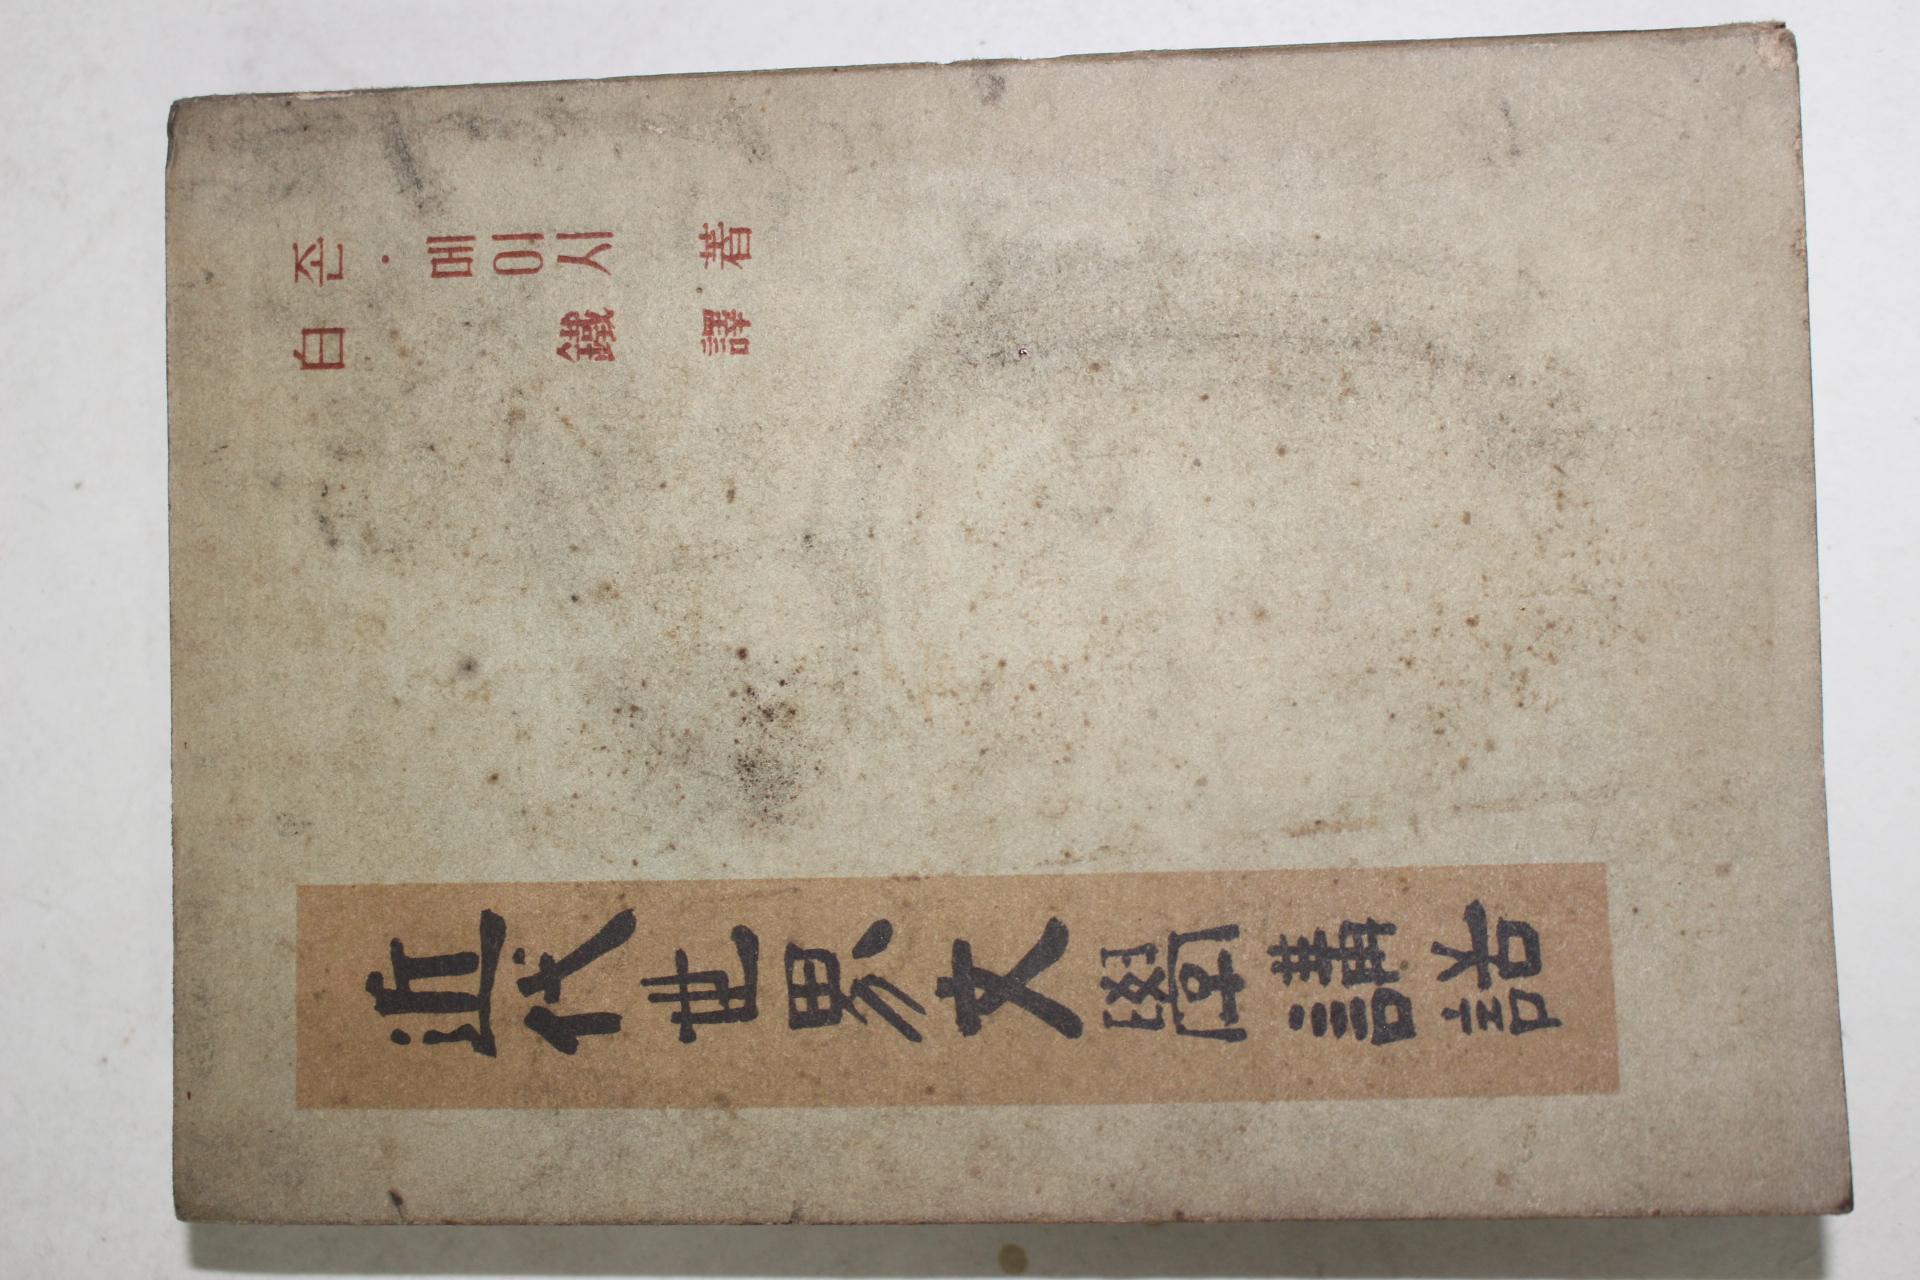 존·메이시 著
白 鐵 譯
近代世界文學講話